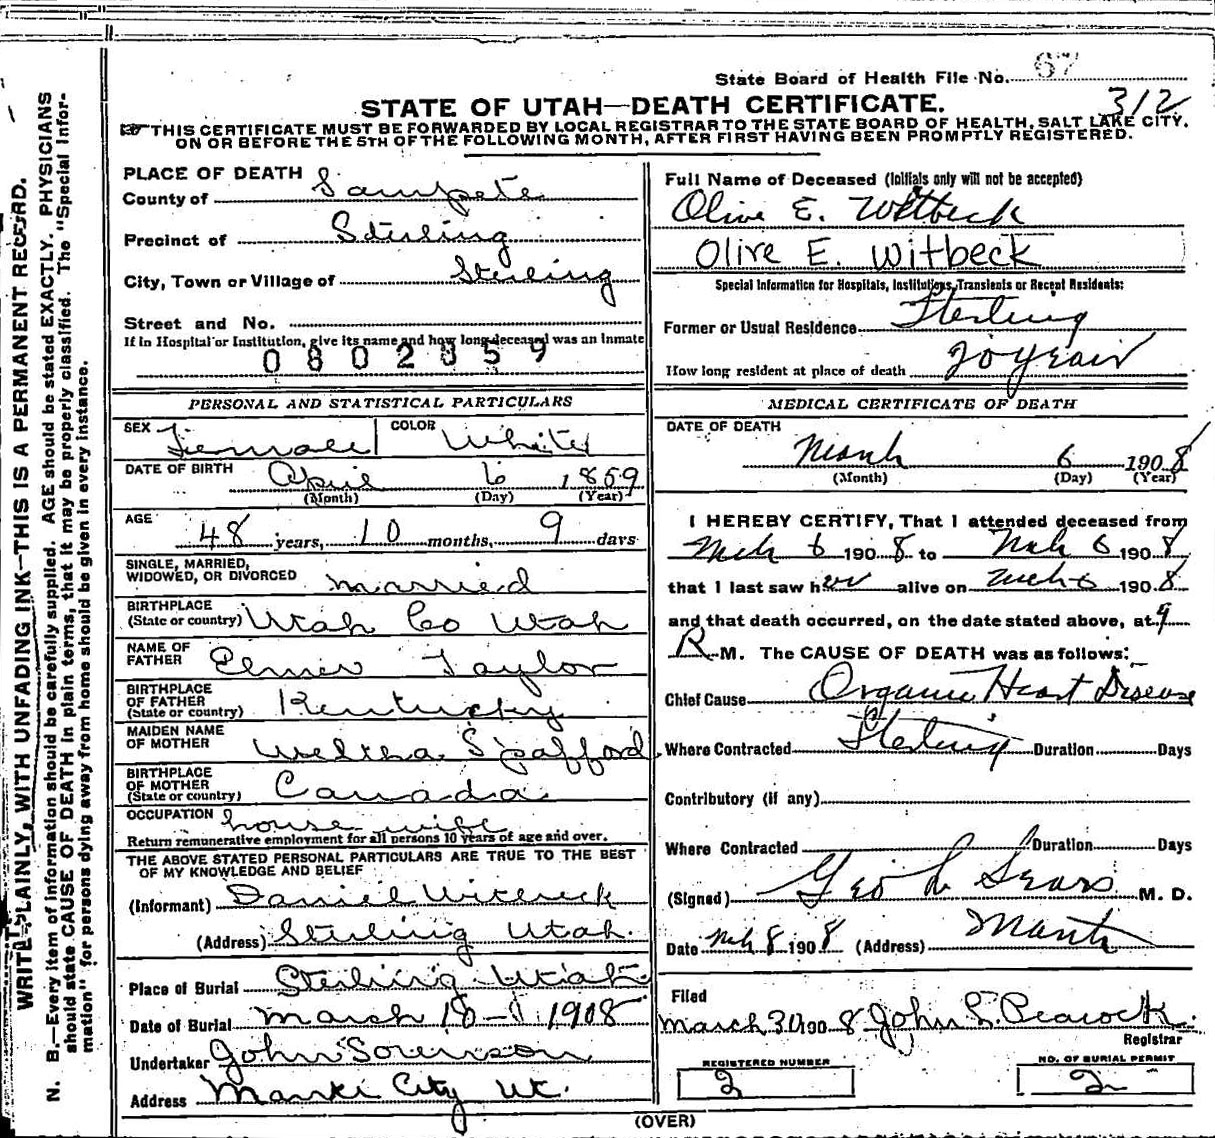 State Board of Health File No. 67
STATE OF UTAH—DEATH CERTIFICATE.
312
☞THIS CERTIFICATE MUST BE FORWARDED BY LOCAL REGISTRAR TO THE STATE BOARD OF HEALTH, SALT LAKE CITY,
ON OR BEFORE THE 5TH OF THE FOLLOWING MONTH, AFTER FIRST HAVING BEEN PROMPTLY REGISTERED.
PLACE OF DEATH
County of Sanpete
Precinct of Sterling
City, Town or Village of Sterling
Street and No.
If in Hospital or Institution, give its name and how long deceased was an Inmate
0802359
PERSONAL AND STATISTICAL PARTICULARS
SEX Female COLOR White
DATE OF BIRTH April 6 1859
(Month) (Day) (Year)
AGE 48 years, 10 months, 9 days
SINGLE, MARRIED,
WIDOWED, OR DIVORCED married
BIRTHPLACE
(State or country) Utah Co Utah
NAME OF
FATHER Elmer Taylor
BIRTHPLACE
OF FATHER
(State or country) Kentucky
MAIDEN NAME
OF MOTHER Weltha Spafford
BIRTHPLACE
OF MOTHER
(State or country) Canada
OCCUPATION house wife
Return remunerative employment for all persons 10 years of age and over.
THE ABOVE STATED PERSONAL PARTICULARS ARE TRUE TO THE BEST
OF MY KNOWLEDGE AND BELIEF
(Informant) Daniel Witbeck
(Address) Sterling Utah.
Place of Burial Sterling Utah
Date of Burial March 1908
Undertaker John Sorenson
Address Manti City Ut.
Full Name of Deceased (Initials only will not be accepted)
Olive E. Witbeck
Olive E. Witbeck
Special Information for Hospitals, Institutions, Transients or Recent Residents:
Former or Usual Residence Sterling
How long resident at place of death 20 years
MEDICAL CERTIFICATE OF DEATH
DATE OF DEATH
March 6 1908
(Month) (Day) (Year)
I HEREBY CERTIFY, That I attended deceased from
Mch 6 1908 to Mch 6 1908
that I last saw her alive on Mch 6 1908
and that death occurred, on the date stated above, at 9
P.M. The CAUSE OF DEATH was as follows:
Chief Cause Organic Heart Disease
Where Contracted Sterling Duration Days
Contributory (if any)
Where Contracted Duration Days
(Signed) Geo L Sears M. D.
Date Mch 8 1908 (Address) Manti
Filed
March 30 1908 John L. Peacock
Registrar
REGISTERED NUMBER
2
NO. OF BURIAL PERMIT
2
(OVER)
WRITE PLAINLY, WITH UNFADING INK—THIS IS A PERMANENT RECORD.
N. B.—Every item of information should be carefully supplied. AGE should be stated EXACTLY. PHYSICIANS
should state CAUSE OF DEATH in plain terms, that it may be properly classified. The "Special Infor-
mation" for persons dying away from home should be given in every instance.